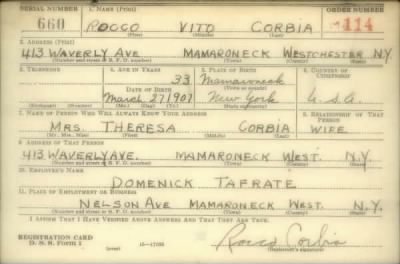 SERIAL NUMBER 1. NAME (Print) ORDER NUMBER
660 ROCCO VITO CORBIA 114
(First) (Middle) (Last)
2. ADDRESS (Print)
413 WAVERLY AVE MAMARONECK WESTCHESTER N.Y.
(Number and street or R. F. D. number) (Town) (County) (State)
3. TELEPHONE 4. AGE IN YEARS 5. PLACE OF BIRTH 6. COUNTRY OF CITIZENSHIP
33 Mamaroneck
DATE OF BIRTH (Town or county)
March 27 1907 New York U.S.A.
(Exchange) (Number) (Mo.) (Day) (Yr.) (State or country)
7. NAME OF PERSON WHO WILL ALWAYS KNOW YOUR ADDRESS 8. RELATIONSHIP OF THAT PERSON
MRS. THERESA CORBIA WIFE
(Mr., Mrs., Miss) (First) (Middle) (Last)
9. ADDRESS OF THAT PERSON
413 WAVERLY AVE. MAMARONECK WEST. N.Y.
(Number and street or R. F. D. number) (Town) (County) (State)
10. EMPLOYER'S NAME
DOMENICK TAFRATE
11. PLACE OF EMPLOYMENT OR BUSINESS
NELSON AVE MAMARONECK WEST. N.Y.
(Number and street or R. F. D. number) (Town) (County) (State)
I AFFIRM THAT I HAVE VERIFIED ABOVE ANSWERS AND THAT THEY ARE TRUE.
REGISTRATION CARD
D. S. S. Form 1 Rocco Corbia
(Registrant's signature)